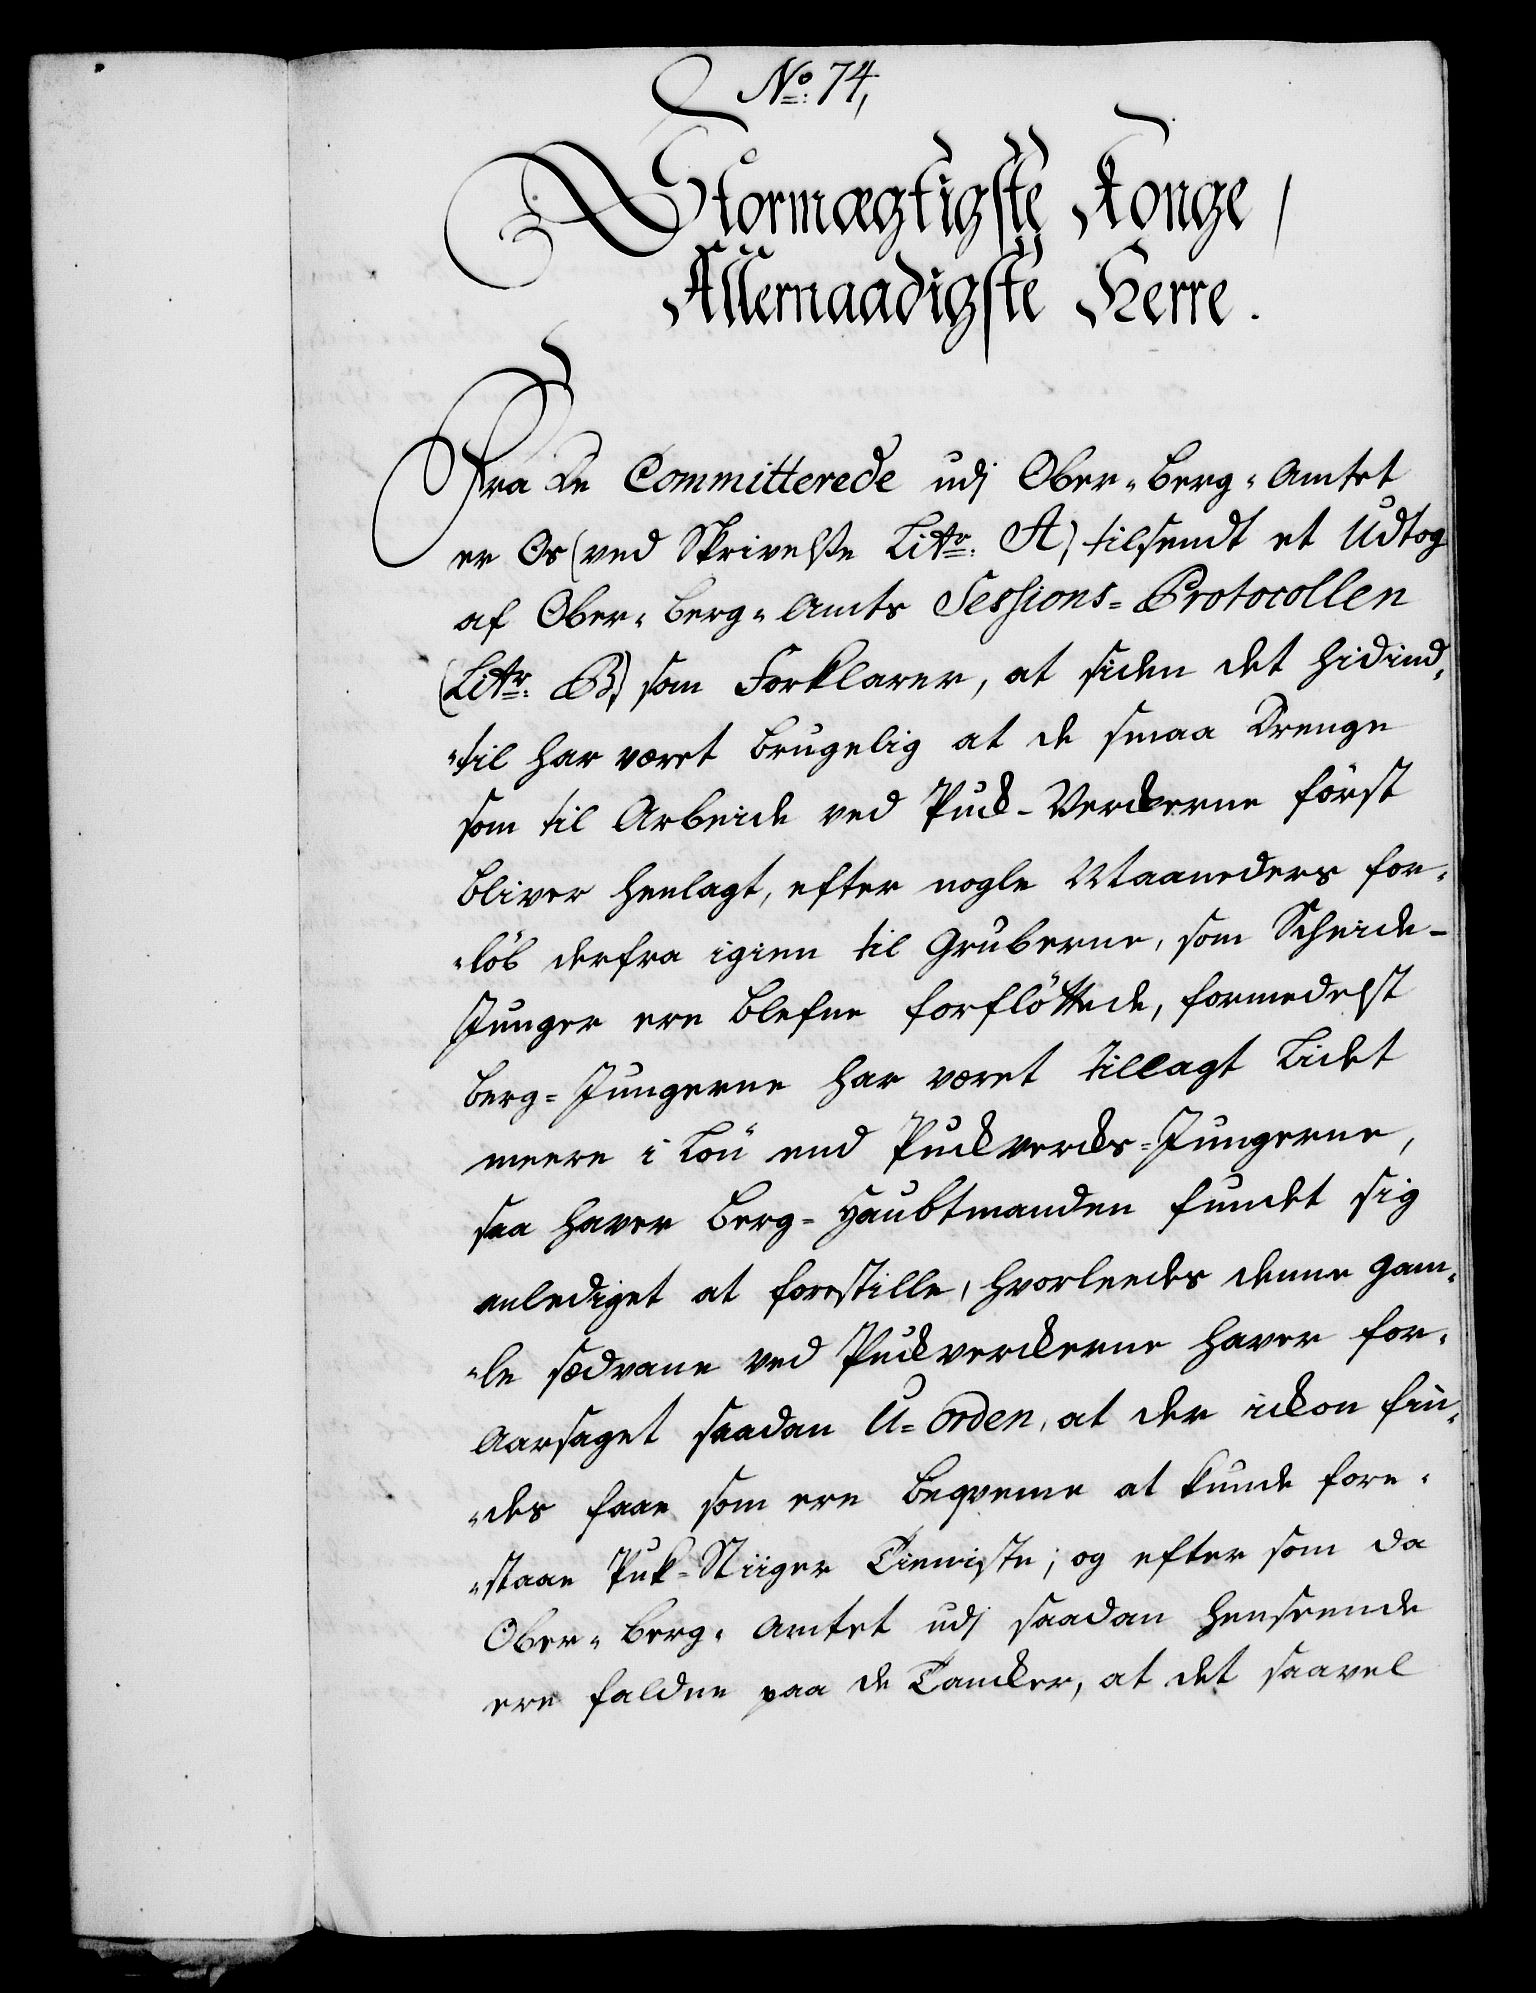 No: 74,
Stormægtigste Konge,
Allernaadigste Herre.
Fra de Committerede udj Ober-Berg-Amtet
er Os (ved Skrivelse Littr: A) tilsendt et Udtog
af Ober-Berg-Amts Sessions-Protocollen
(Littr: B) som Forklarer, at siden det hidind-
-til har været brugelig at de smaa Drenge
som til Arbeide ved Puck-Verckerne först
bliver henlagt, efter nogle Maaneders for-
-löb derfra igien til Gruberne, som Scheide-
Junger ere blefne forflöttede, formedelst
Berg-Jungerne har været tillagt Lidet
meere i Lön end Puckvercks-Jungerne,
saa haver Berg-Haubtmanden fundet sig
anlediget at forestille, hvorleedes denne gam-
-le sædvane ved Puckverckerne haver for-
Aarsaget saadan U-orden, at der ickon fin-
-des faae som ere beqveme at kunde fore-
-staae Puk-Stiiger Tieniste; og efter som da
Ober-Berg-Amtet udj saadan henseende
ere faldne paa de Tancker, at det saavel